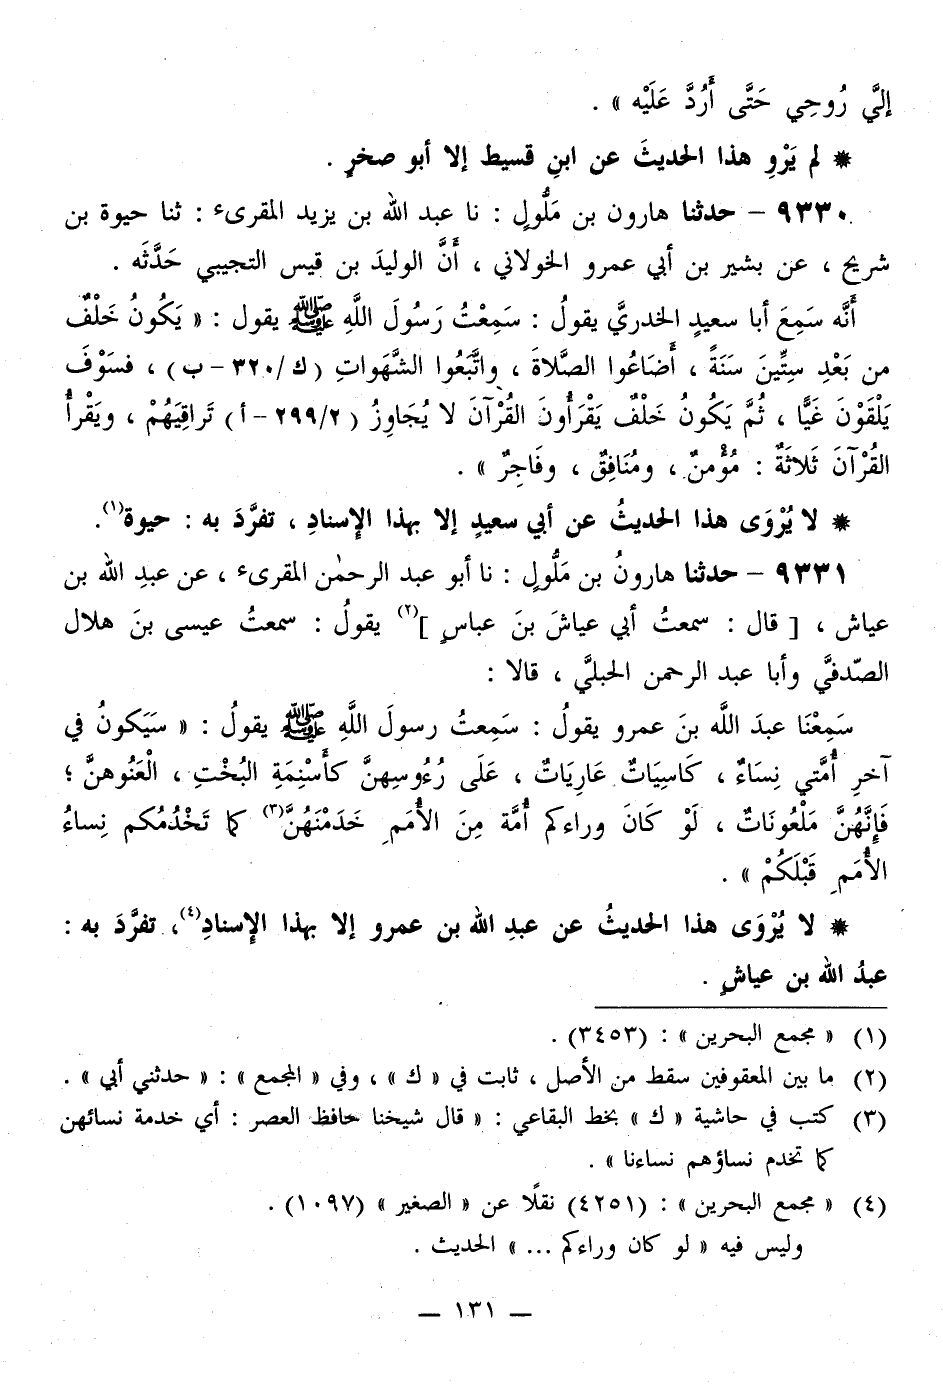 إليَّ رُوحِي حَتَّى أَرُدَّ عَلَيْه » .
* لم يَرْوِ هذا الحديثَ عن ابنِ قسيط إلا أبو صخرٍ .
٩٣٣٠ – حدثنا هارون بن مَلُّولٍ : نا عبد الله بن يزيد المقرىء : ثنا حيوة بن
شريح ، عن بشير بن أبي عمرو الخولاني ، أَنَّ الوليدَ بن قيس التجيبي حَدَّثَه .
أَنَّه سَمِعَ أبا سعيدٍ الخدريَّ يقولُ : سَمِعْتُ رَسُولَ اللَّهِ ﷺ يقول : « يَكُونُ خَلْفٌ
من بَعْدِ سِتِّينَ سَنَةً ، أَضَاعُوا الصَّلاةَ ، واتَّبَعُوا الشَّهَواتِ ( ك /٣٢٠ – ب ) ، فسَوْفَ
يَلْقَوْنَ غَيًّا ، ثُمَّ يَكُونُ خَلْفٌ يَقْرَأُونَ القُرْآنَ لا يُجَاوِزُ ( ٢٩٩/٢ – أ ) تَراقِيَهُمْ ، ويَقْرأُ
القُرْآنَ ثَلاثَةٌ : مُؤْمنٌ ، ومُنَافِقٌ ، وفَاجِرٌ » .
* لا يُرْوَى هذا الحديثُ عن أبي سعيدٍ إلا بهذا الإسنادِ ، تفرَّدَ به : حيوة(١).
٩٣٣١ – حدثنا هارونُ بن مَلُّولٍ : نا أبو عبد الرحمٰن المقرىء ، عن عبدِ الله بن
عياش ، [ قال : سمعتُ أبي عياشَ بنَ عباسٍ ](٢) يقولُ : سمعتُ عيسى بنَ هلال
الصّدفيَّ وأبا عبد الرحمن الحبليَّ ، قالا :
سَمِعْنَا عبدَ اللَّه بنَ عمرو يقولُ : سَمِعتُ رسولَ اللَّهِ ﷺ يقولُ : « سَيَكونُ في
آخرِ أُمَّتي نِسَاءٌ ، كَاسِيَاتٌ عَارِيَاتٌ ، عَلَى رُءُوسِهنَّ كأَسْنِمَةِ البُخْتِ ، الْعَنُوهنَّ ؛
فَإِنَّهُنَّ مَلْعُونَاتٌ ، لَوْ كَانَ وراءكم أُمَّة مِنَ الأُمَمِ خَدَمْنَهُنَّ(٣) كما تَخْدُمُكم نِساءُ
الأُمَمِ قَبْلَكُمْ » .
* لا يُرْوَى هذا الحديثُ عن عبدِ الله بن عمرو إلا بهذا الإسنادِ(٤)، تفرَّدَ به :
عبدُ الله بن عياشٍ .
(١) « مجمع البحرين » : (٣٤٥٣) .
(٢) ما بين المعقوفين سقط من الأصل ، ثابت في « ك » ، وفي « المجمع » : « حدثني أبي » .
(٣) كتب في حاشية « ك » بخط البقاعي : « قال شيخنا حافظ العصر : أي خدمة نسائهن
كما تخدم نساؤهم نساءنا » .
(٤) « مجمع البحرين » : (٤٢٥١) نقلًا عن « الصغير » (١٠٩٧) .
وليس فيه « لو كان وراءكم ... » الحديث .
— ١٣١ —